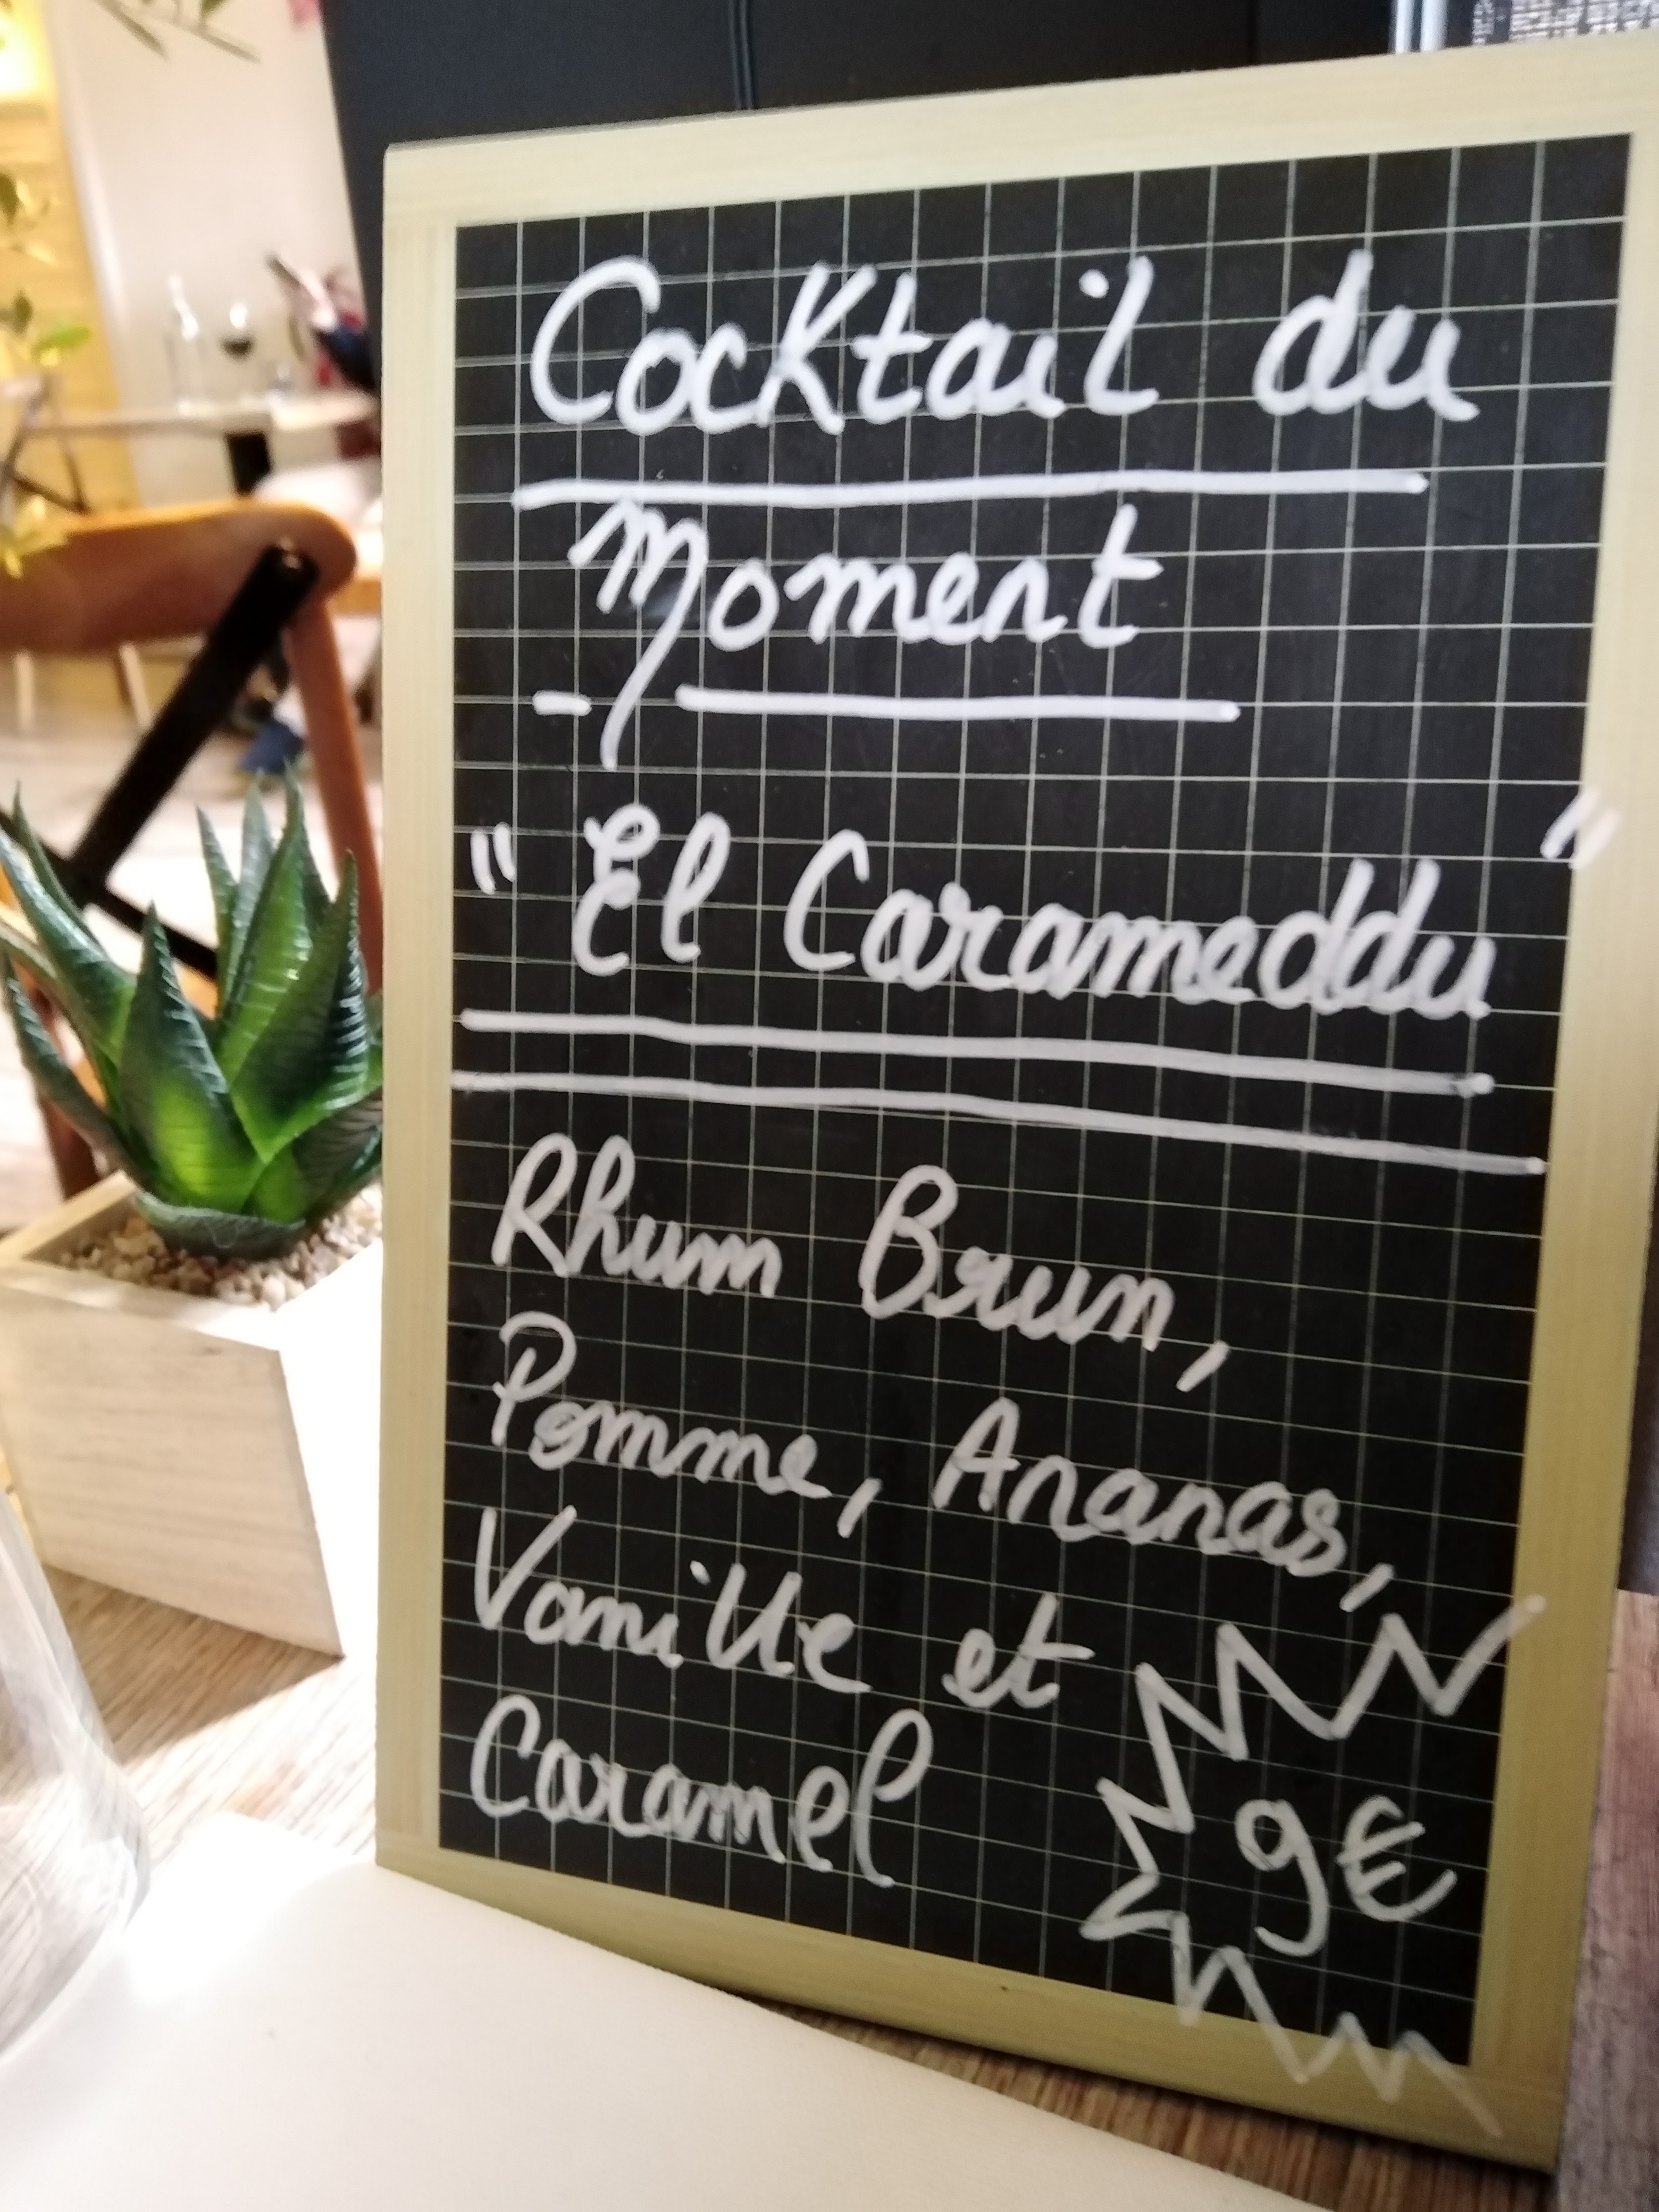 Cocktail du
Moment
"El Carameddu"
Rhum Brun,
Pomme, Ananas,
Vanille et
Caramel
9€